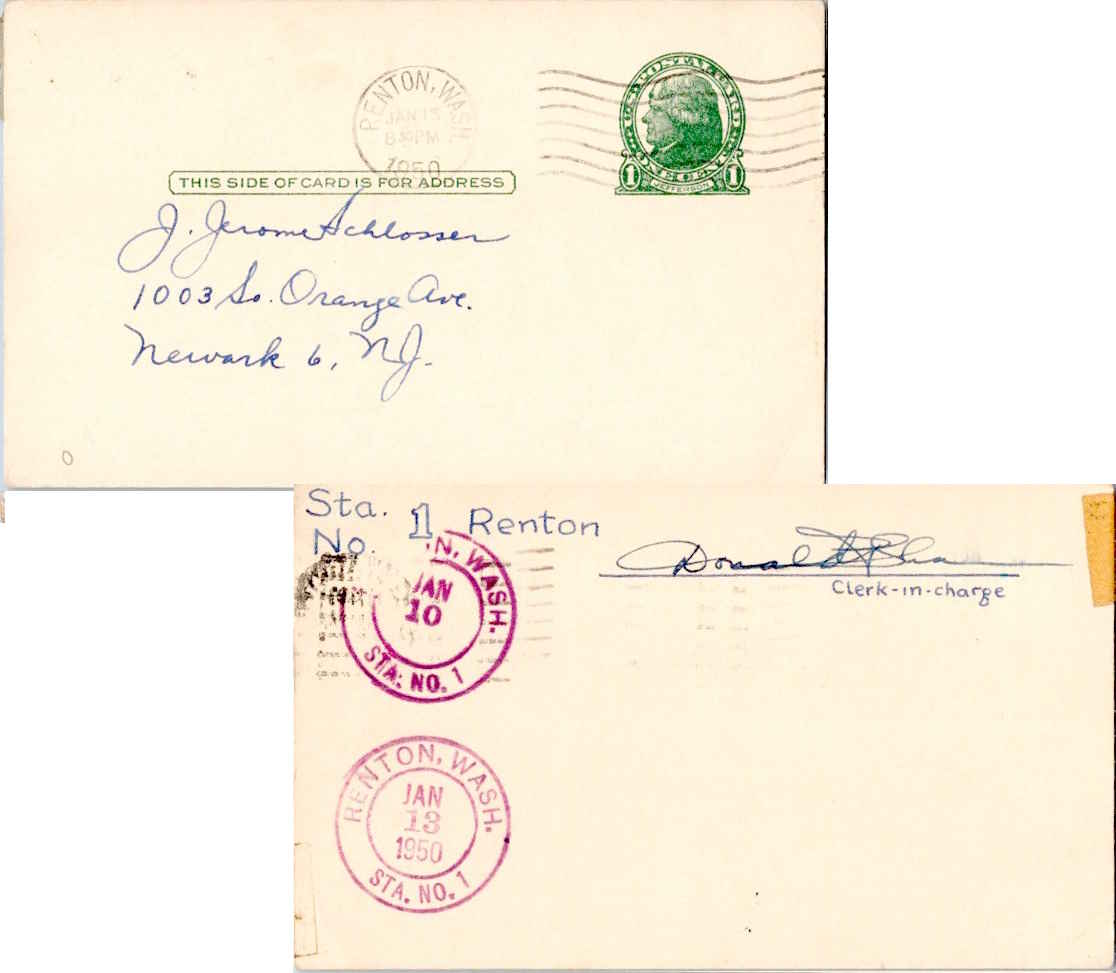 RENTON, WASH
JAN 13
8 30 PM
1950
U.S. POSTAL CARD
ONE CENT
1 JEFFERSON 1
THIS SIDE OF CARD IS FOR ADDRESS
J. Jerome Schlosser
1003 So. Orange Ave.
Newark 6, NJ.
Sta.
No. 1 Renton
Donald
Clerk-in-charge
N, WASH.
JAN
10
STA. NO. 1
RENTON, WASH.
JAN
13
1950
STA. NO. 1